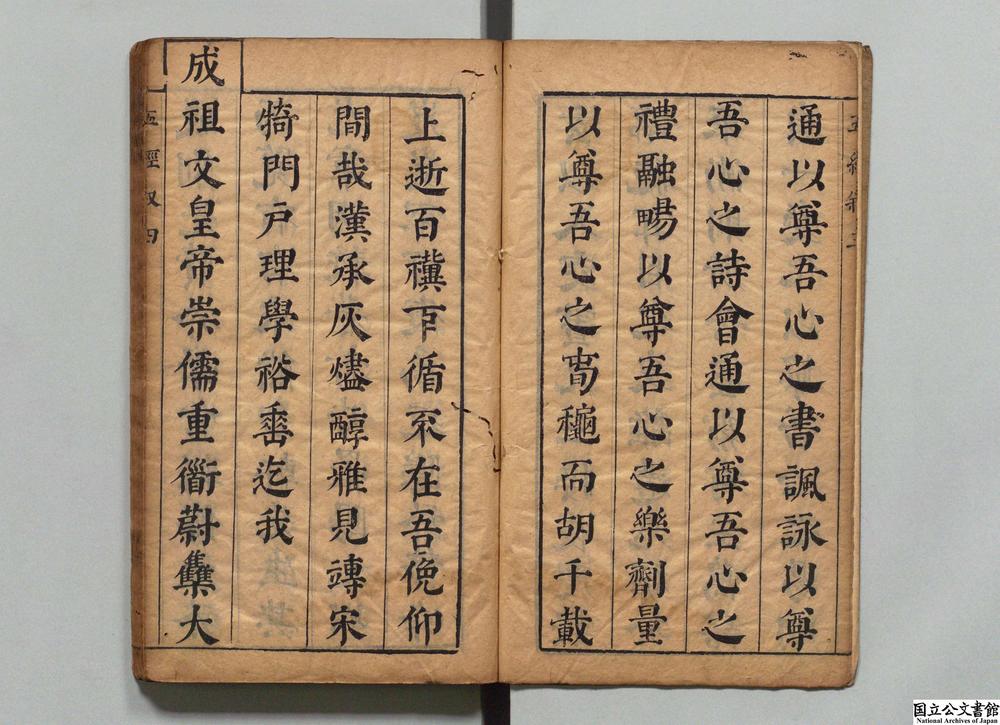 通以尊吾心之書諷詠以尊
吾心之詩會通以尊吾心之
禮融暢以尊吾心之樂劑量
以尊吾心之而胡千載
上逝百禩下循不在吾俛仰
間哉漢承灰燼醇雅見專宋
犄門戸理學裕垂迄我
成
祖文皇帝崇儒重衜蔚集大
五經叙四
国立公文書館
National Archives of Japan